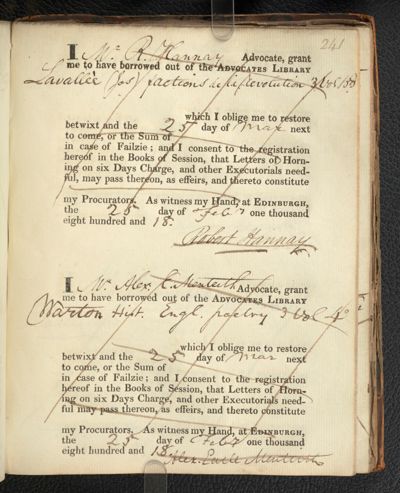 241
I Mr R. Hannay Advocate, grant
me to have borrowed out of the ADVOCATES LIBRARY
Lavallée (Jos) factions de la Revolution 3 vol 8º
which I oblige me to restore
betwixt and the 25 day of Mar next
to come, or the Sum of
in case of Failzie; and I consent to the registration
hereof in the Books of Session, that Letters of Horn-
ing on six Days Charge, and other Executorials need-
ful, may pass thereon, as effeirs, and thereto constitute
my Procurators. As witness my Hand, at EDINBURGH,
the 25 day of Feby one thousand
eight hundred and 18.
Robert Hannay
I Mr Alex. E. Monteith Advocate, grant
me to have borrowed out of the ADVOCATES LIBRARY
Warton Hist. Engl. poetry 3 vol 4º
which I oblige me to restore
betwixt and the 25 day of Mar next
to come, or the Sum of
in case of Failzie; and I consent to the registration
hereof in the Books of Session, that Letters of Horn-
ing on six Days Charge, and other Executorials need-
ful may pass thereon, as effeirs, and thereto constitute
my Procurators. As witness my Hand, at EDINBURGH,
the 25 day of Feby one thousand
eight hundred and 18.
Alex. Earle Monteith